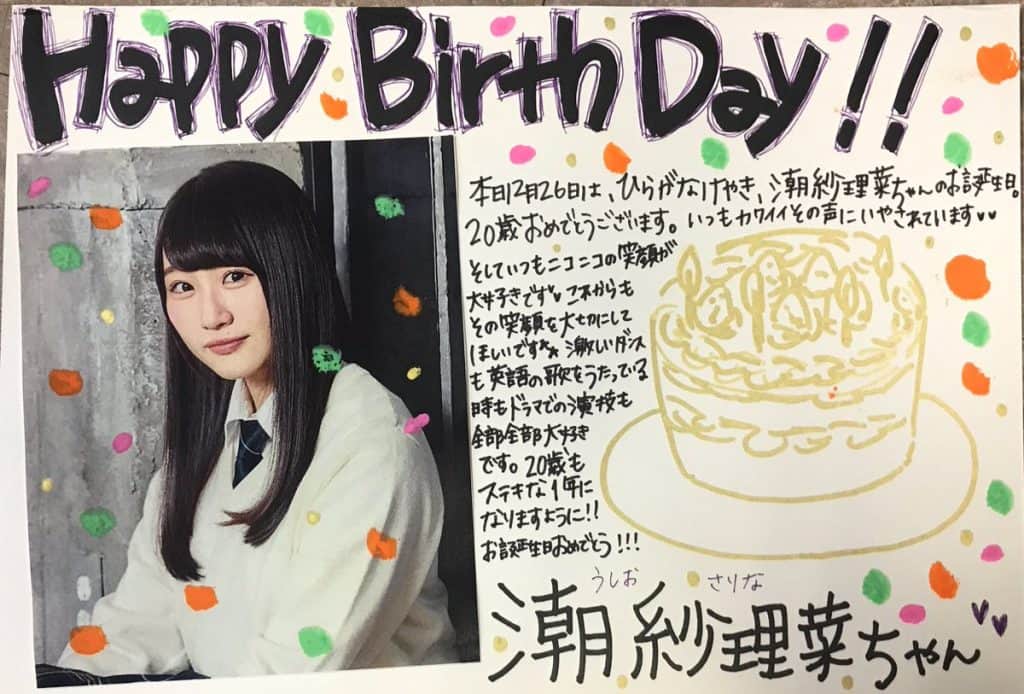 Happy Birth Day!!
本日12月26日は、ひらがなけやき、潮紗理菜ちゃんのお誕生日。
20歳おめでとうございます。いつもカワイイその声にいやされています♥♥
そしていつもニコニコの笑顔が
大好きです♥これからも
その笑顔を大切にして
ほしいです 激しいダンス
も英語の歌をうたっている
時もドラマでの演技も
全部全部大好き
です。20歳も
ステキな1年に
なりますように!!
お誕生日おめでとう!!!
うしお さりな
潮紗理菜ちゃん